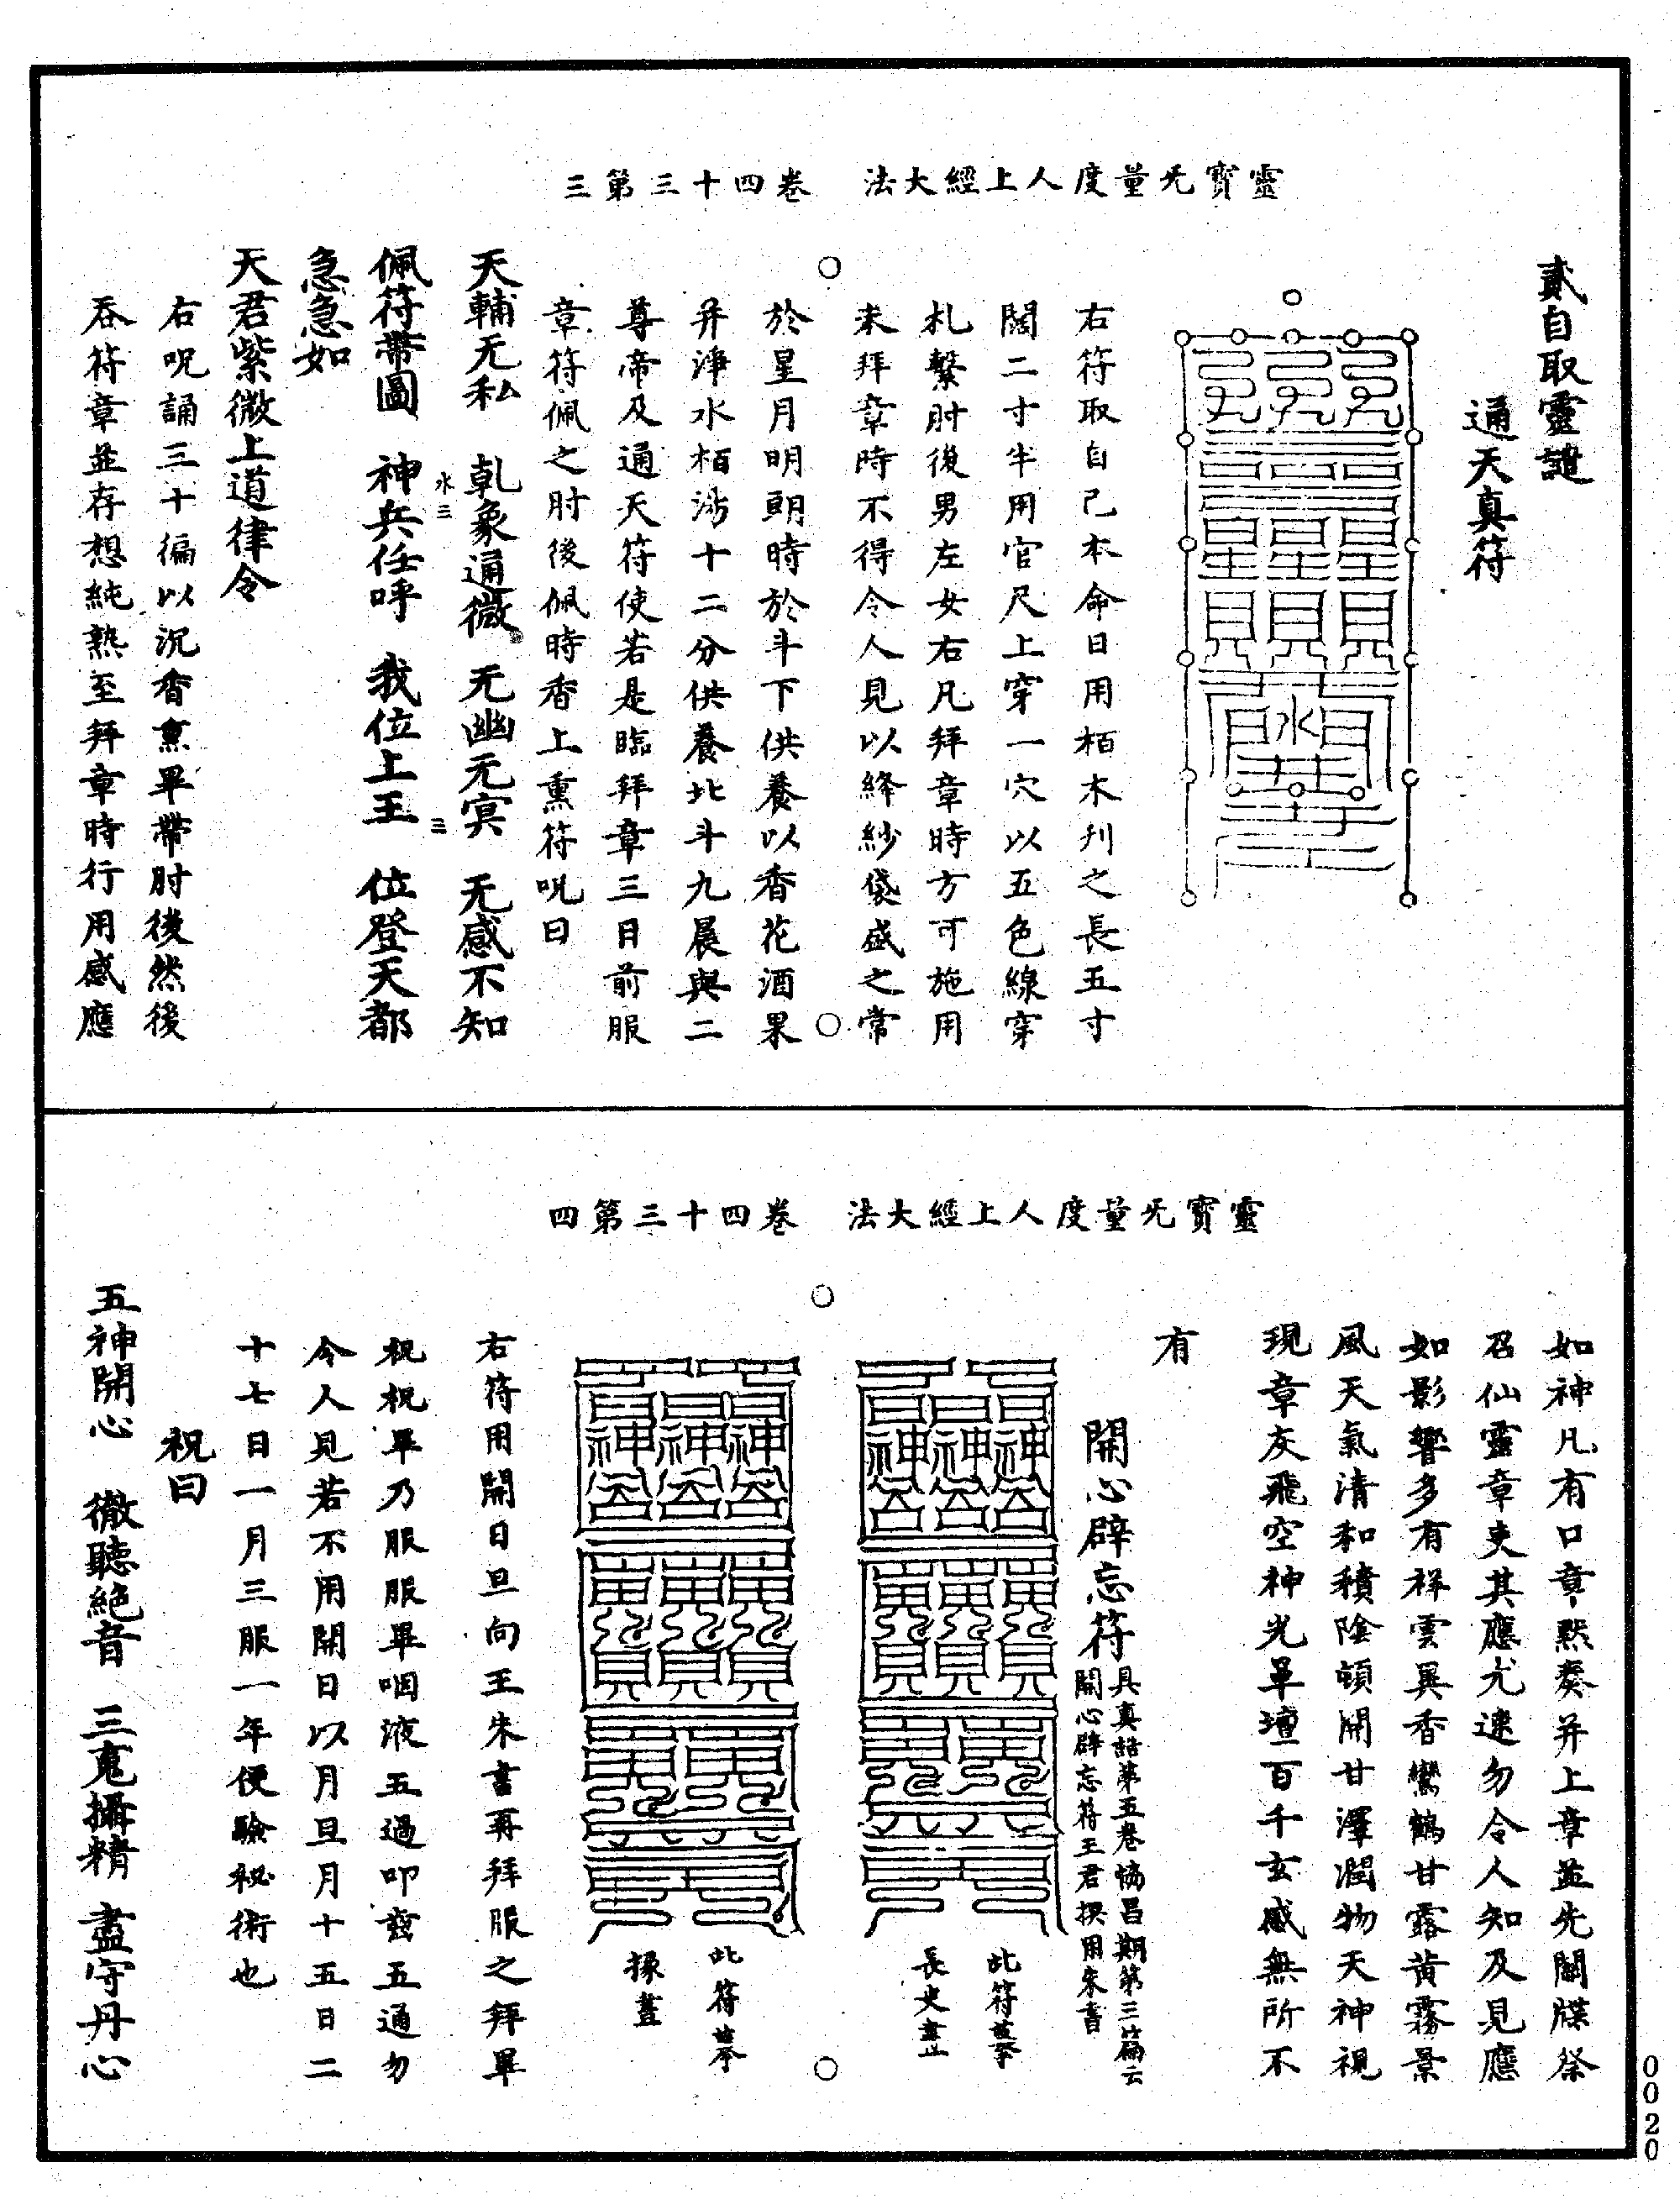 靈寶无量度人上經大法　卷四十三第三
貳自取靈證
通天真符
右符取自己本命日用栢木刋之長五寸
闊二寸半用官尺上穿一穴以五色線穿
札繫肘後男左女右凡拜章時方可施用
未拜章時不得令人見以絳紗袋盛之常
於星月明朗時於斗下供養以香花酒果
并淨水栢湯十二分供養北斗九晨與二
尊帝及通天符使若是臨拜章三日前服
章符佩之肘後佩時香上熏符呪曰
天輔无私　乹象通微　无幽无冥　无感不知
佩符帶圖　神兵任呼　我位上王　位登天都
急急如
天君紫微上道律令
右呪誦三十徧以沉香熏畢帶肘後然後
吞符章並存想純熟至拜章時行用感應
靈寶无量度人上經大法　卷四十三第四
如神凡有口章黙奏并上章並先關牒祭
召仙靈章吏其應尤速勿令人知及見應
如影響多有祥雲異香鸞鶴甘露黄霧景
風天氣清和積陰頓開甘澤潤物天神視
現章灰飛空神光單壇百千玄感無所不
有
開心辟忘符
具真誥第五卷協昌期第三篇云
開心辟忘符王君撰用朱書
此符摹
長史畫
此符摹
掾畫
右符用開日旦向王朱書再拜服之拜畢
祝祝畢乃服服畢咽液五過叩齒五通勿
令人見若不用開日以月旦月十五日二
十七日一月三服一年便驗秘術也
祝曰
五神開心　徹聽絶音　三䰟攝精　盡守丹心
0020